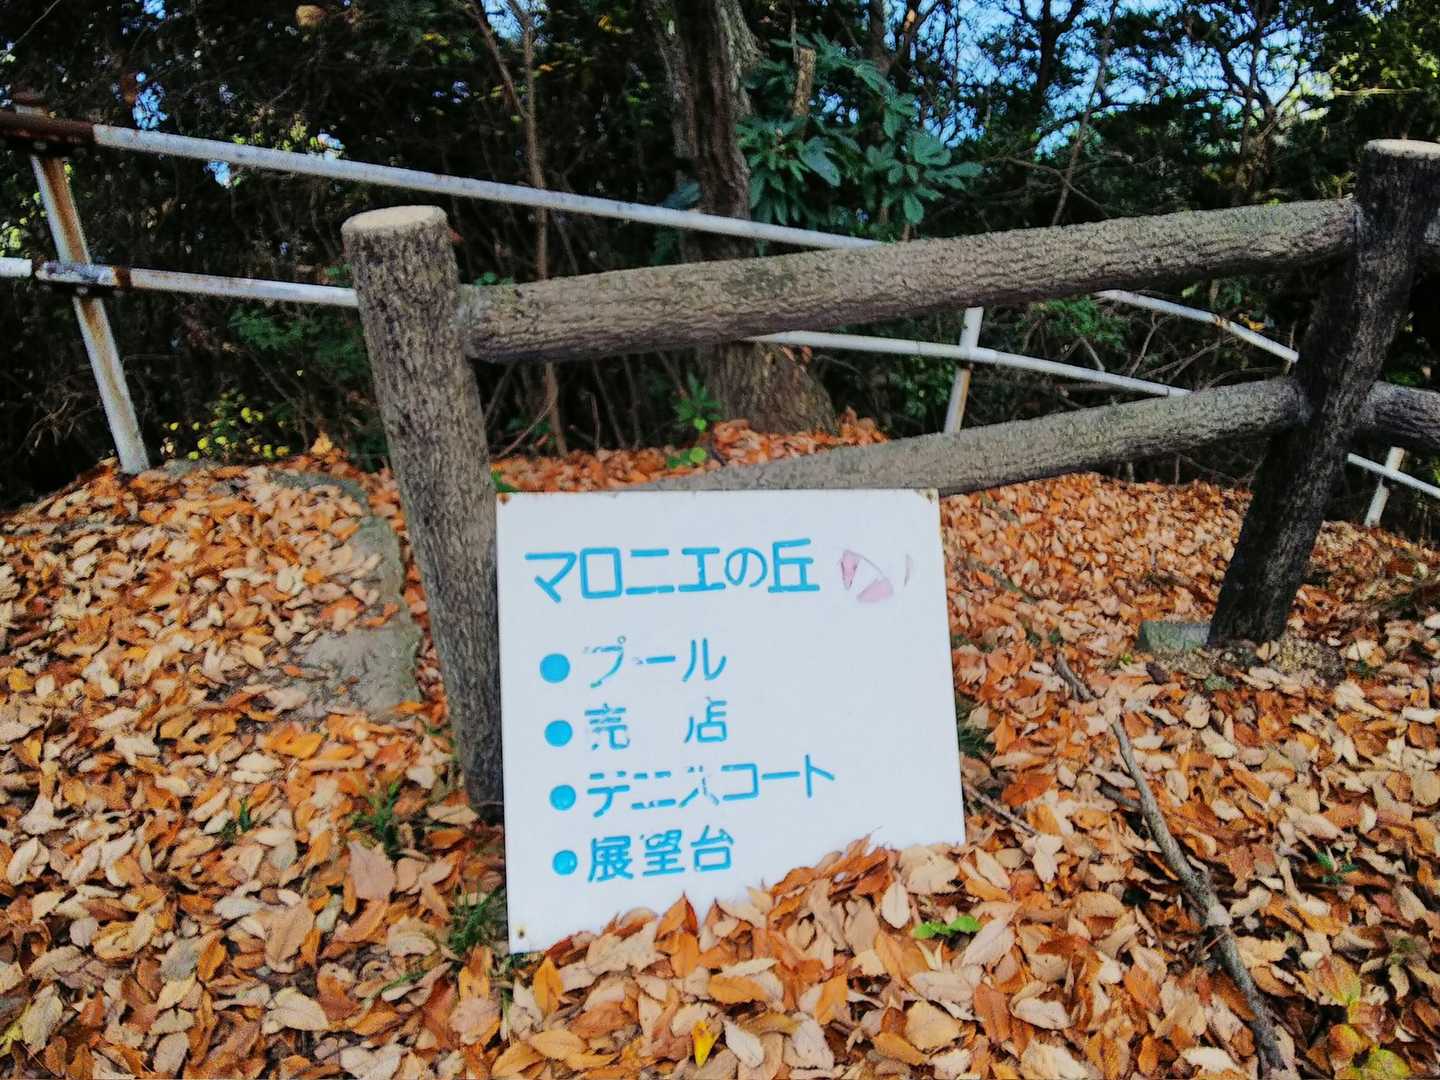 マロニエの丘
●プール
●売 店
●テニスコート
●展望台